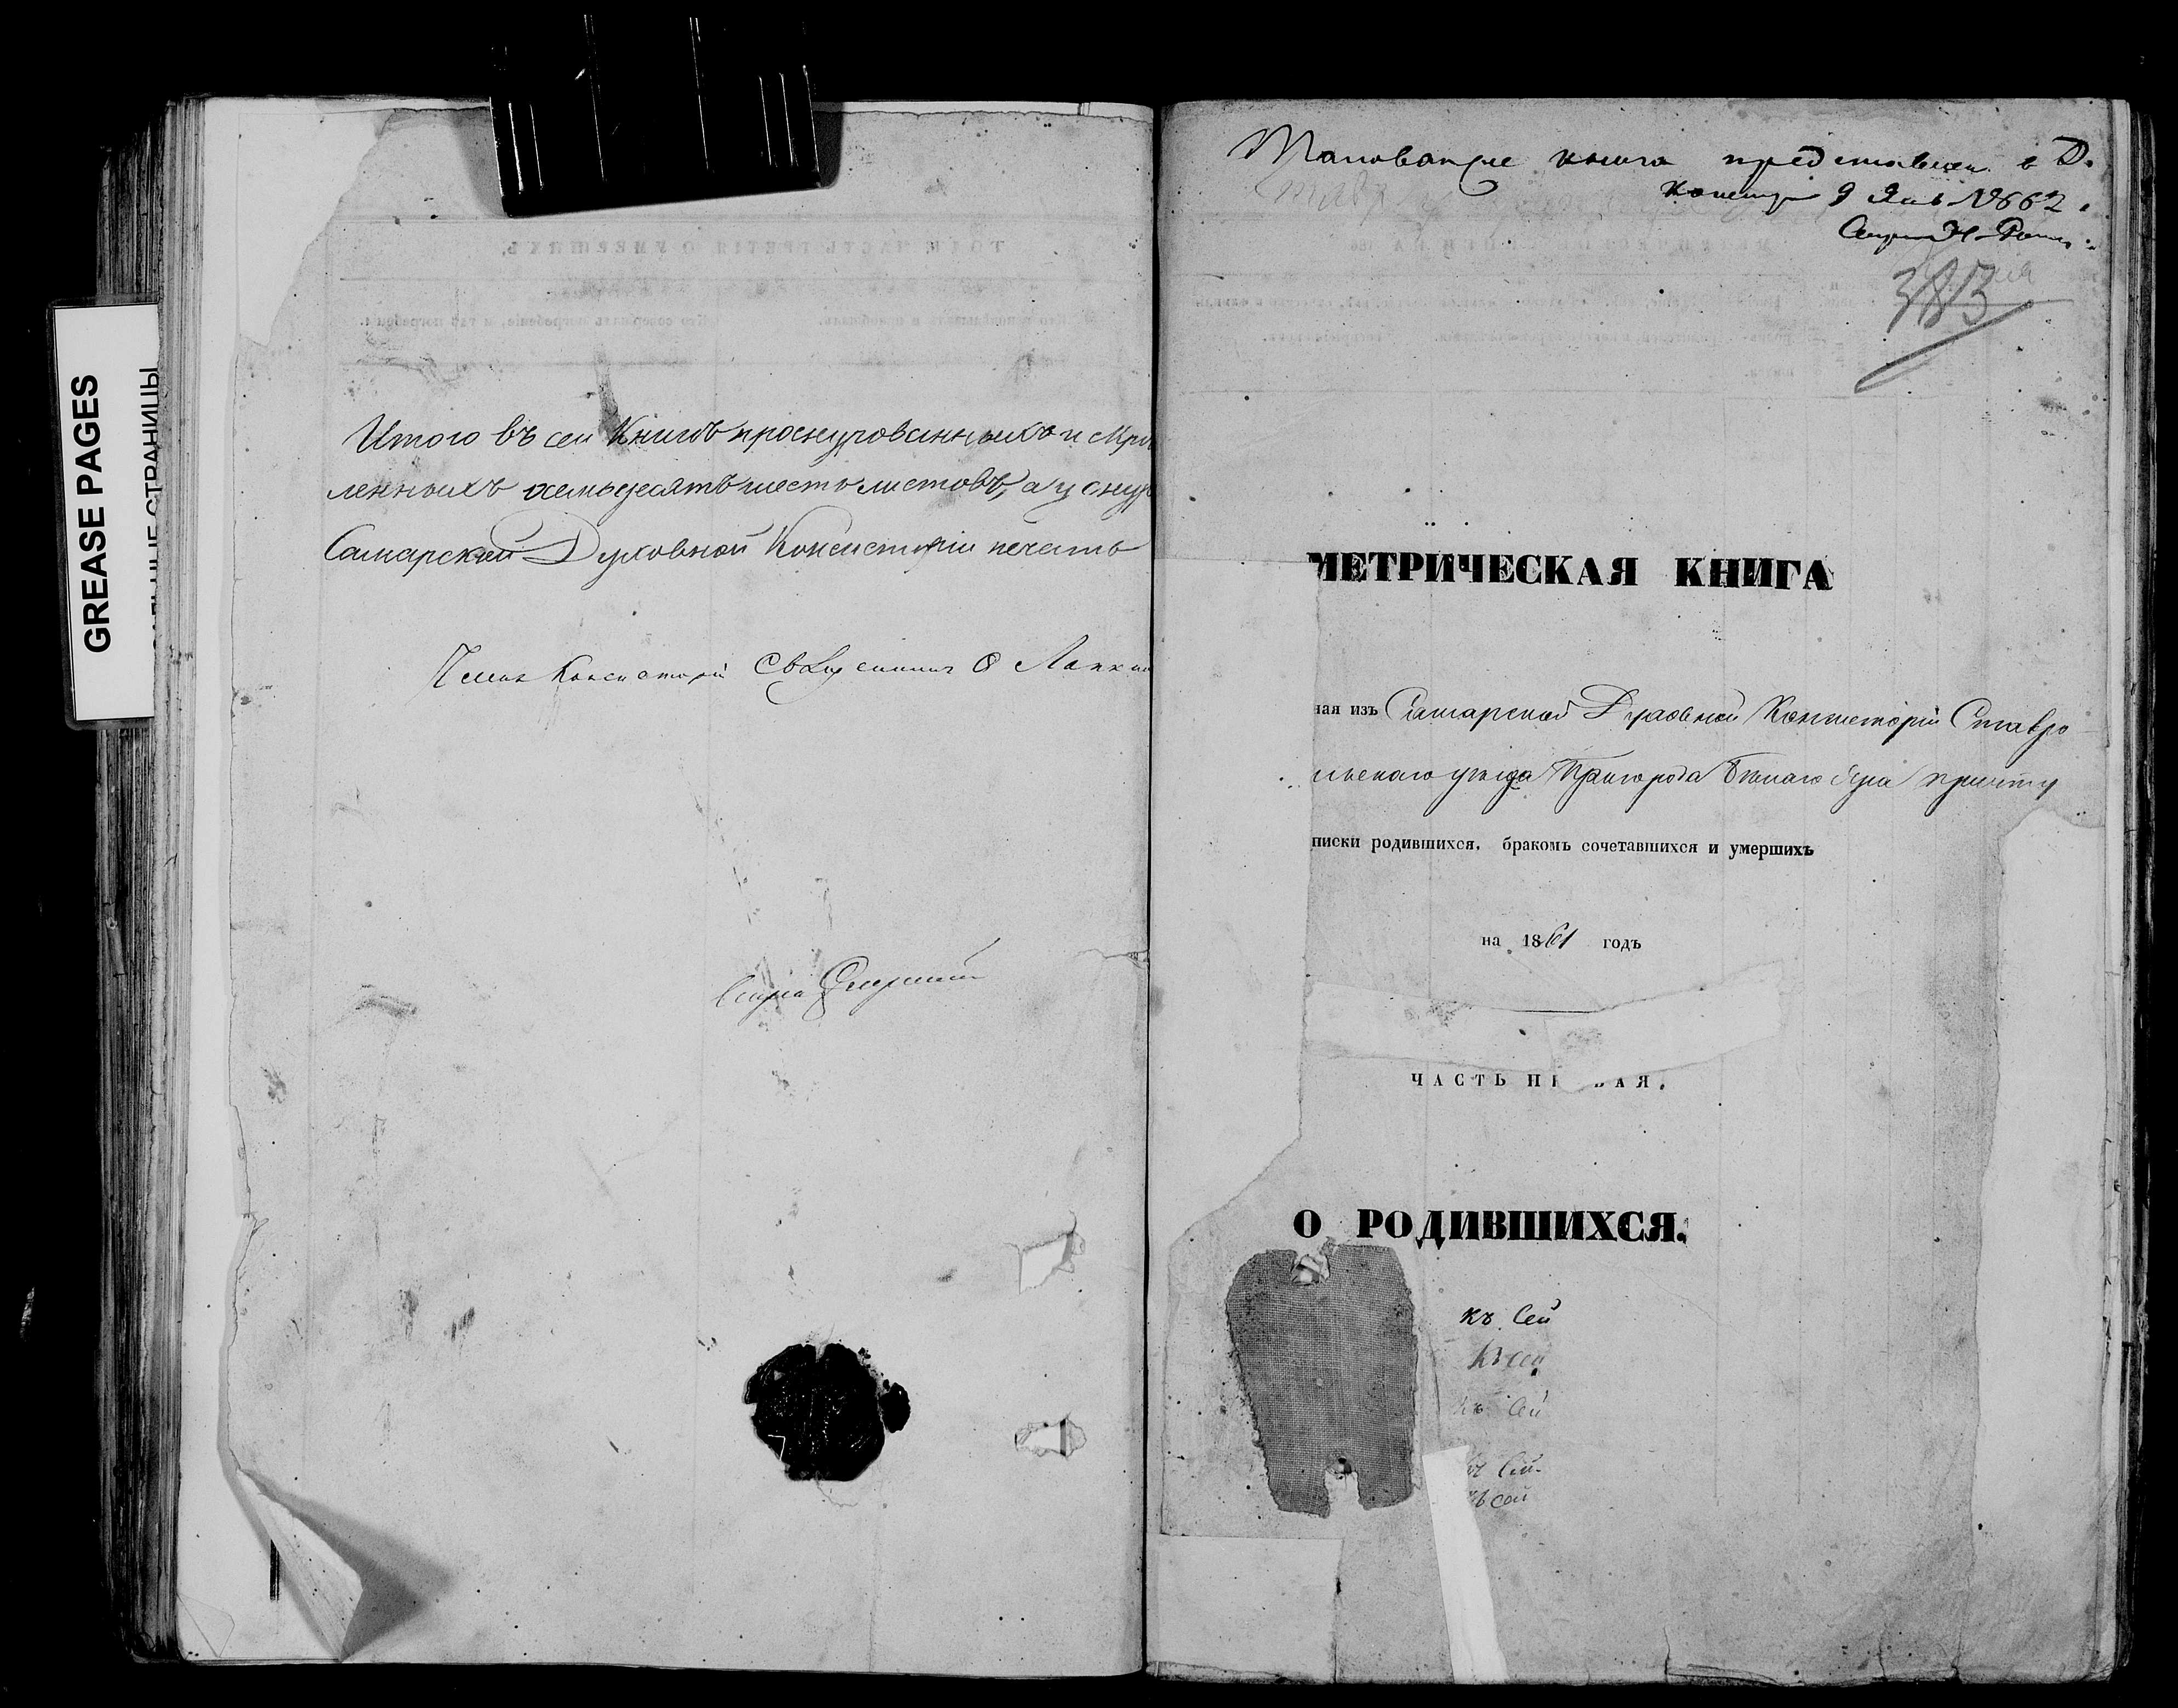 GREASE PAGES
САЛЬНЫЕ СТРАНИЦЫ
Итого въ сей Книгѣ прошнурованныхъ и скрѣп
ленныхъ осемьдесятъ шесть листовъ, а у снура
Самарской Духовной Консисторіи печать
Членъ Консисторіи Священникъ
Таковая же книга представлена в Д.
9 Янв. №662.
383
МЕТРИЧЕСКАЯ КНИГА
ная изъ Самарской Духовной Консисторіи Ставро
льскаго уѣзда Пригорода Бѣлаго Яра причту
писки родившихся, бракомъ сочетавшихся и умершихъ
на 1861 годъ
ЧАСТЬ ПЕРВАЯ.
О РОДИВШИХСЯ.
къ Сей
къ сей
къ Сей
къ Сей
къ сей